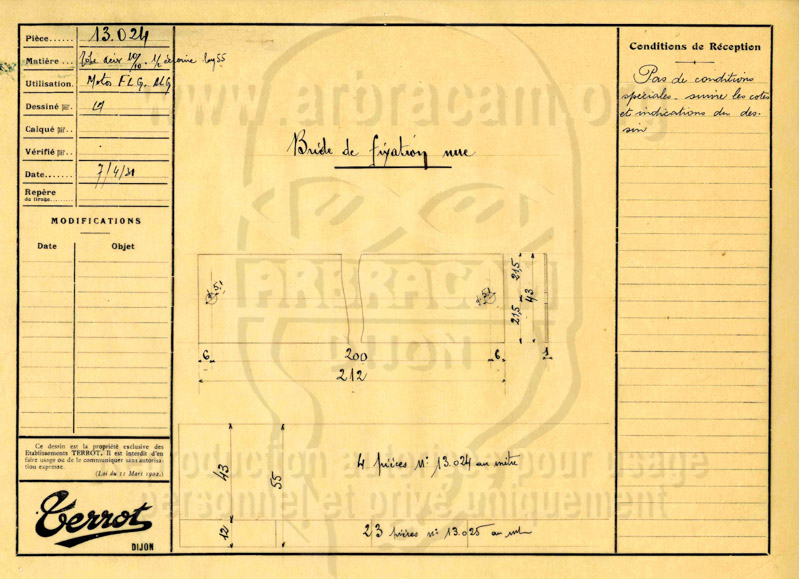 Pièce...... 13.024
Matière... Tôle acier 10/10. 1/2 lg 55
Utilisation. Motos FLG. RLG
Dessiné par.
Calqué par..
Vérifié par..
Date....... 7/4/31
Repère
du tirage.......
MODIFICATIONS
Date Objet
Ce dessin est la propriété exclusive des
Etablissements TERROT. Il est interdit d'en
faire usage ou de le communiquer sans autorisa-
tion expresse.
(Loi du 11 Mars 1902.)
Terrot
DIJON
Bride de fixation nue
5,1
5,1
21,5
21,5
43
6
200
6
1
212
43
55
12
4 pièces N° 13.024 au mètre
23 pièces N° 13.025 au
Conditions de Réception
Pas de conditions
spéciales - suivre les cotes
et indications du des-
sin
www.arbracam.org
ARBRACAM
DIJON
Reproduction autorisée pour usage
personnel et privé uniquement